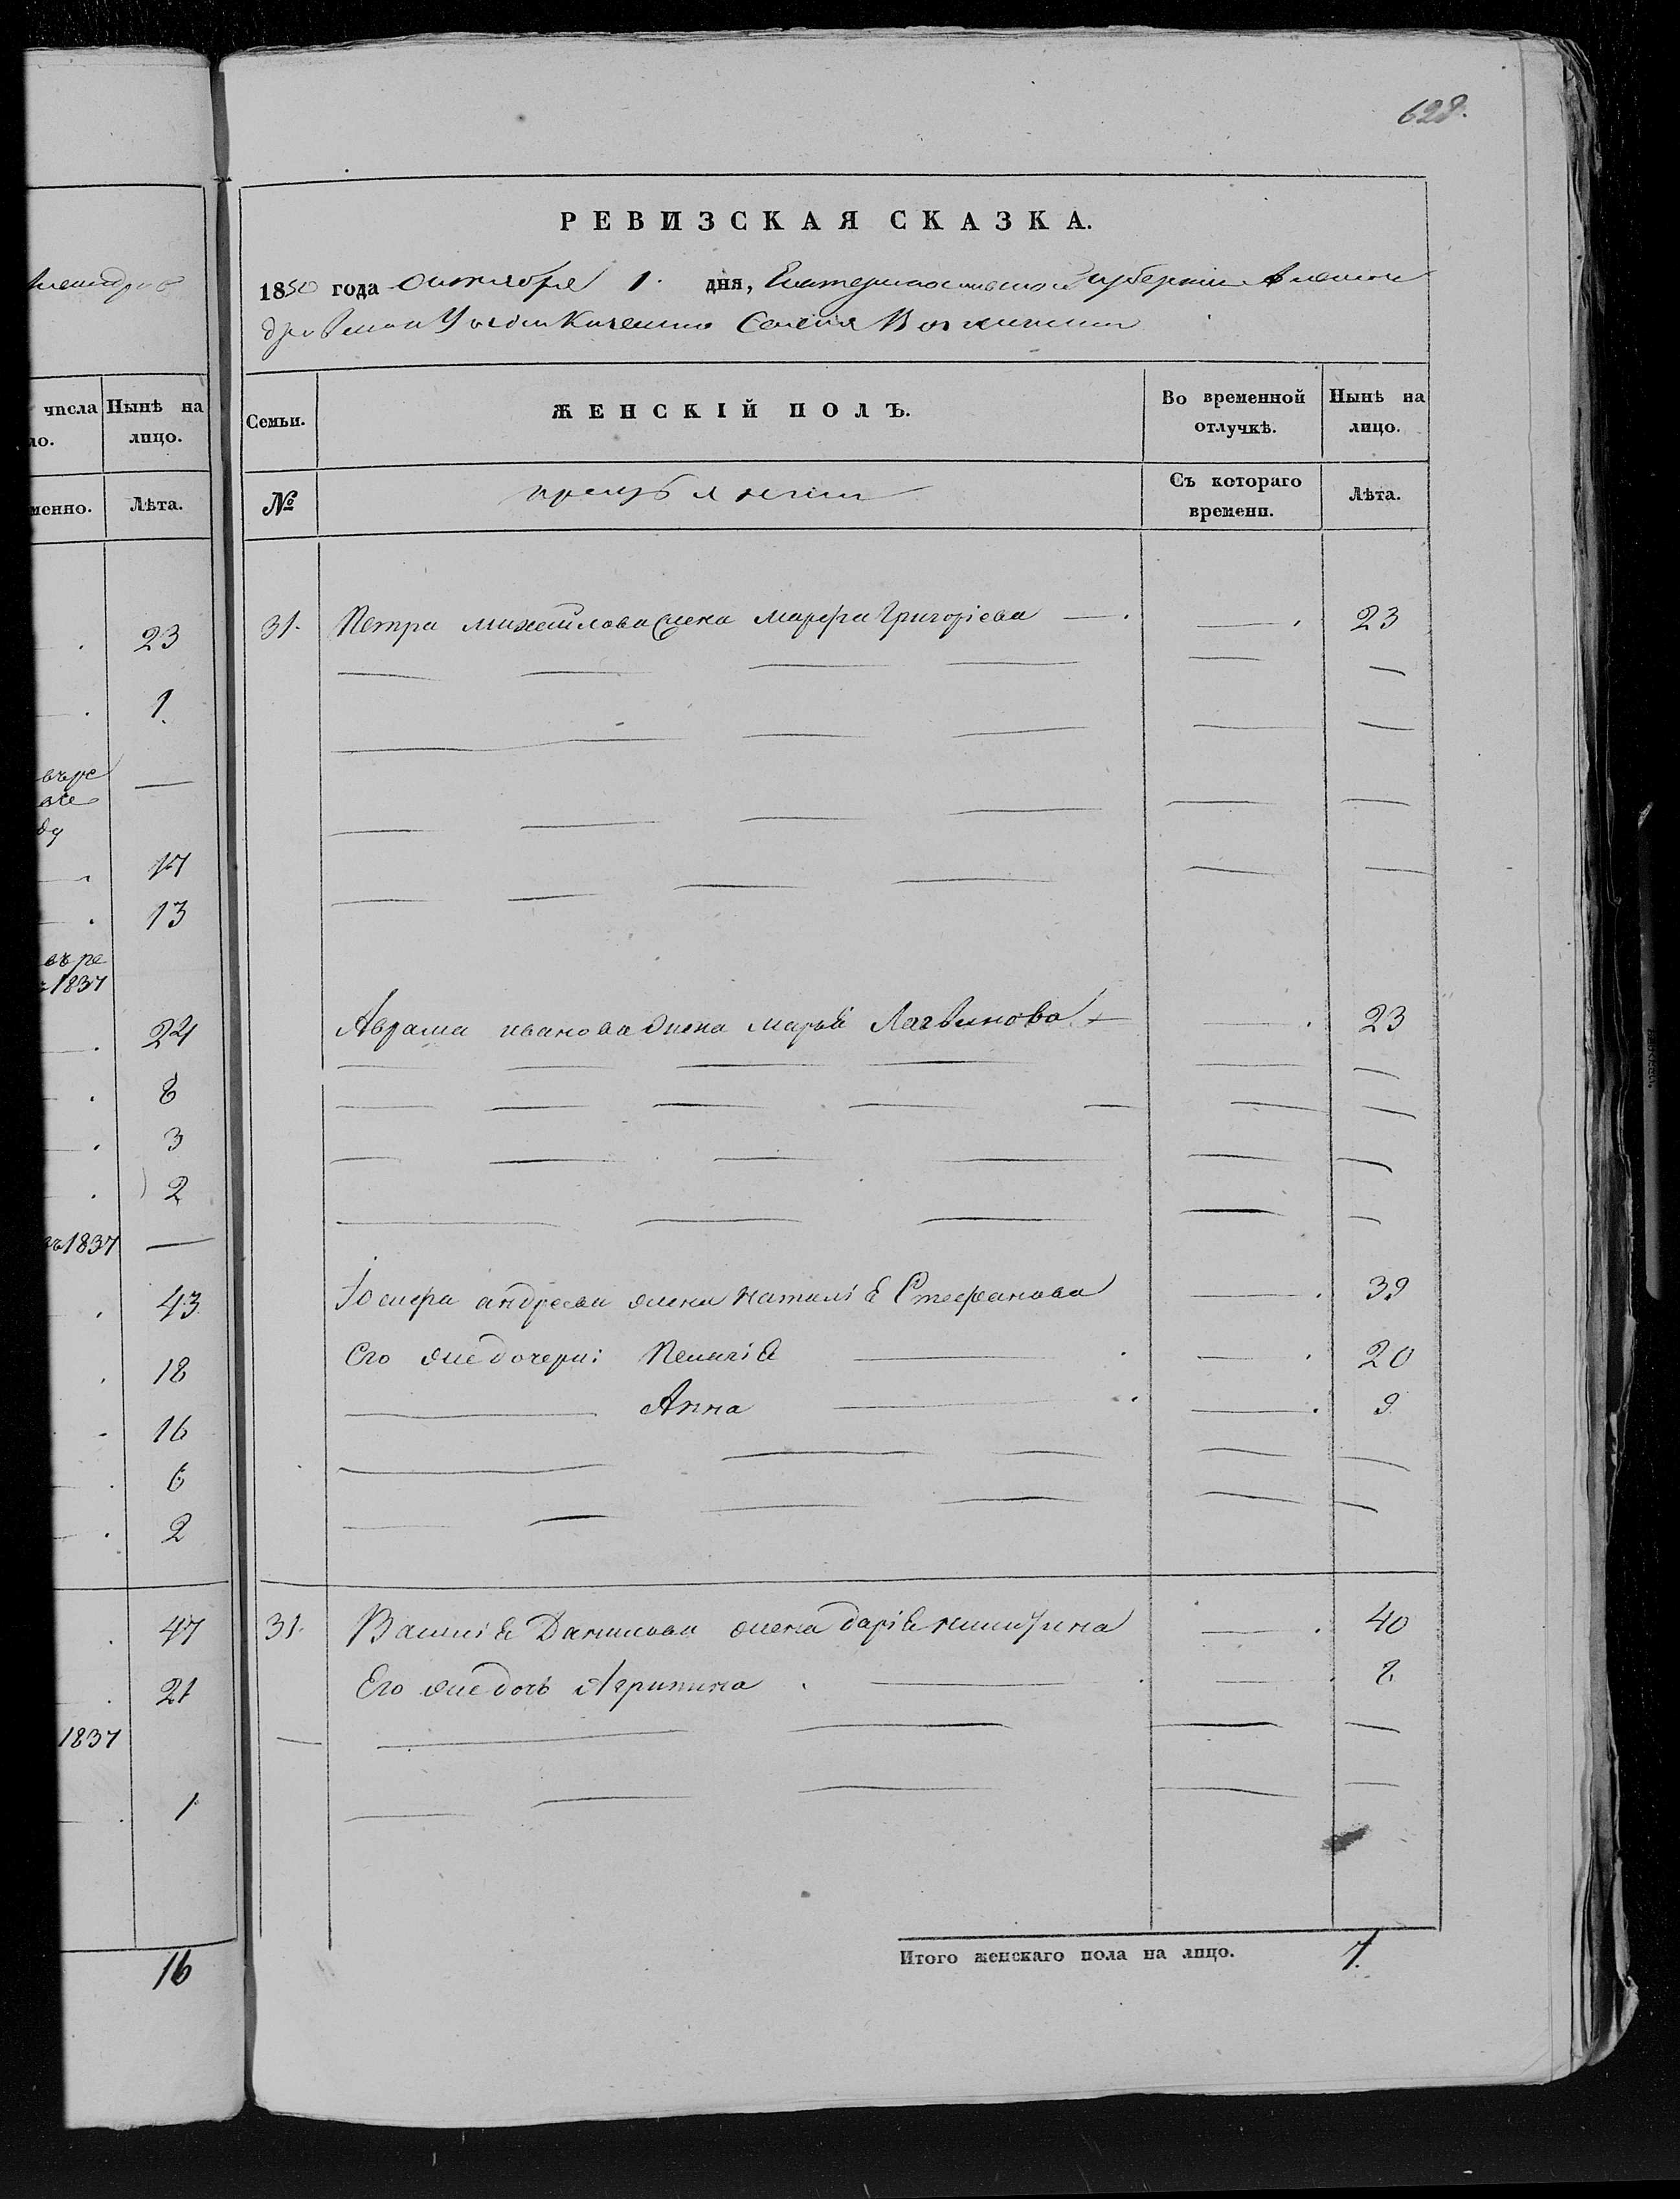 628.
РЕВИЗСКАЯ СКАЗКА.
1850 года октября 1. дня, Екатеринославской губернии Алексан
дровскаго Уезда Казенного Селения
числа Нынѣ на
ло. лицо.
менно. Лѣта.
Семьи. ЖЕНСКІЙ ПОЛЪ. Во временной отлучкѣ. Нынѣ на лицо.
№ Съ котораго времени. Лѣта.
23
1.
въ ре
17
13
въ ре
1837
24
8
3
2
въ 1837
43
18
16
6
2
47
21
1837
1
16
31. Петра Михайлова жена Марфа Григоріева 23
Аврама Иванова жена Марья Логвинова 23
Іосифа Андреева жена Наталія Стефанова 39
Его же дочери: 20
Анна 9
31. Василія Данилова жена Дарія 40
Его же дочь Агрипина
Итого женскаго пола на лицо. 7.